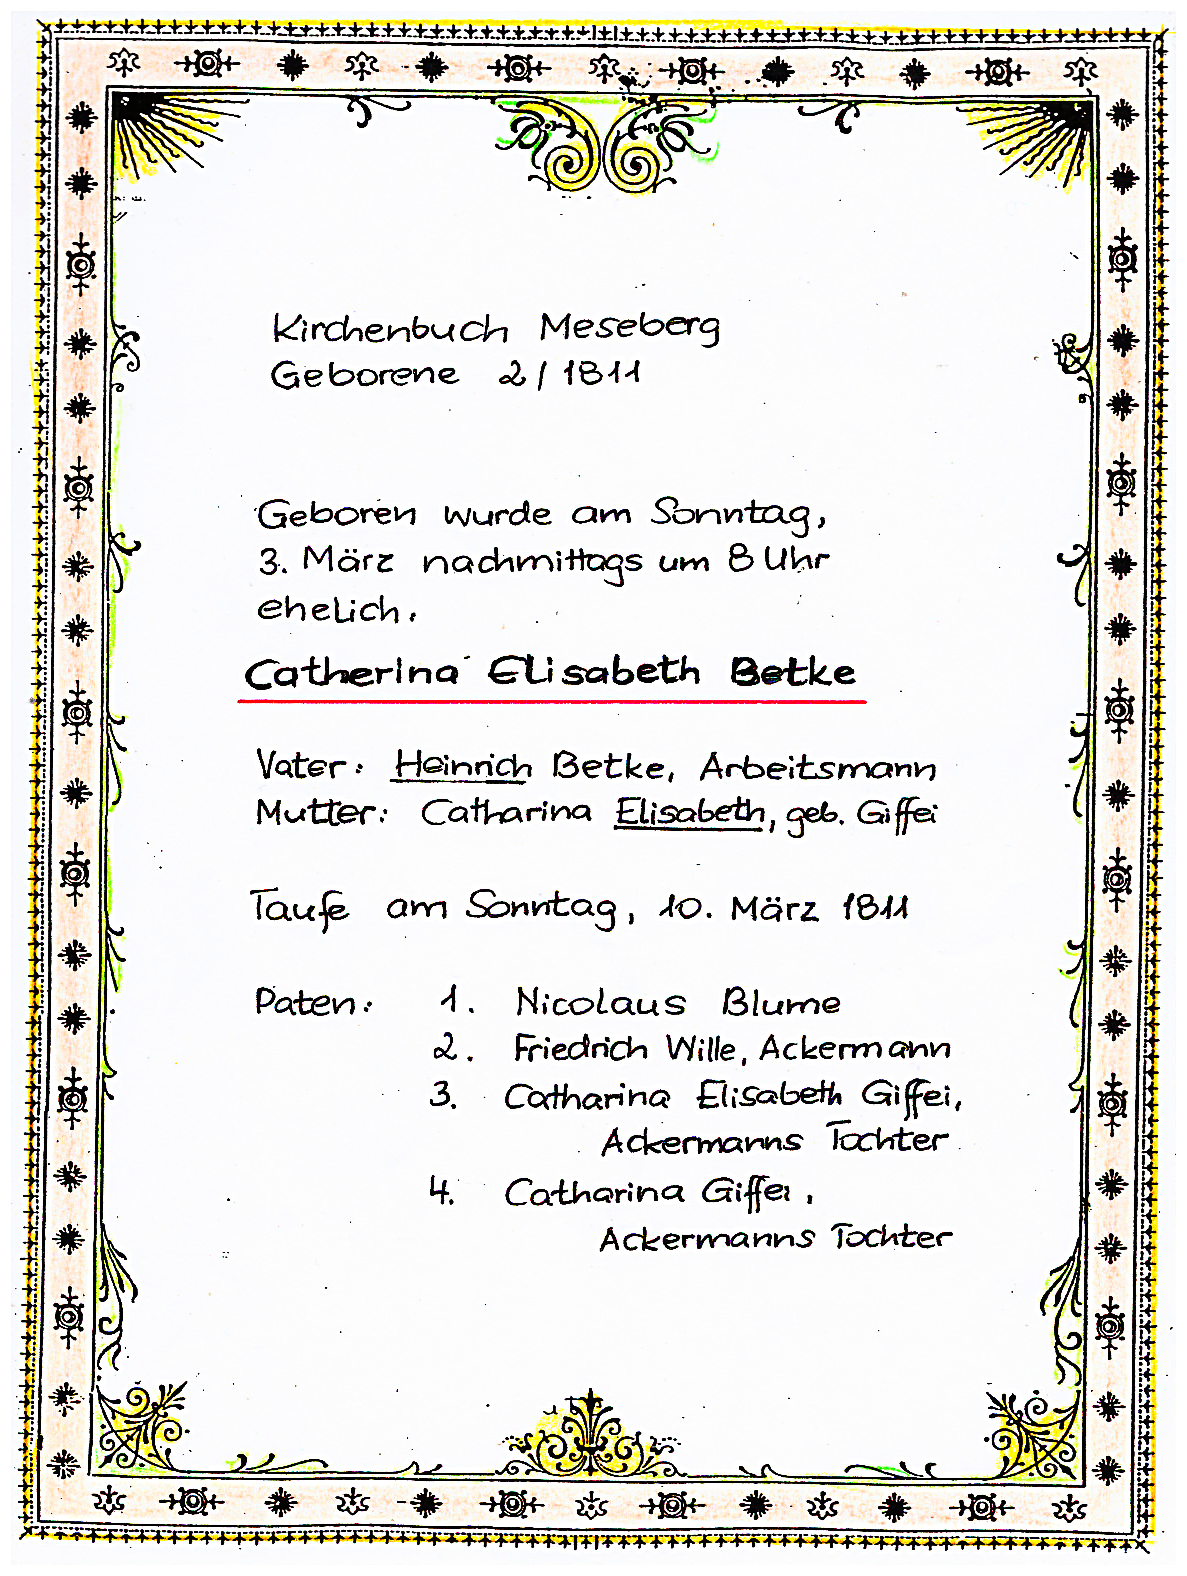 Kirchenbuch Meseberg
Geborene 2/1811
Geboren wurde am Sonntag,
3. März nachmittags um 8 Uhr
ehelich.
Catherina Elisabeth Betke
Vater: Heinrich Betke, Arbeitsmann
Mutter: Catharina Elisabeth, geb. Giffei
Taufe am Sonntag, 10. März 1811
Paten: 1. Nicolaus Blume
2. Friedrich Wille, Ackermann
3. Catharina Elisabeth Giffei,
Ackermanns Tochter
4. Catharina Giffei,
Ackermanns Tochter